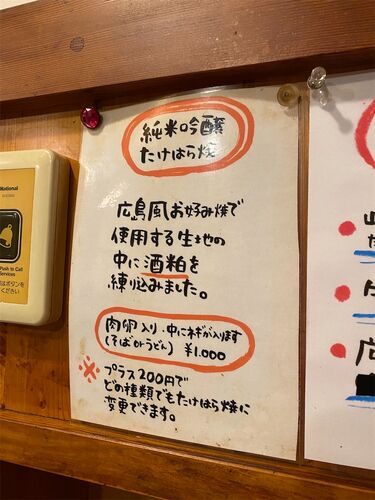 純米吟醸
たけはら焼
広島風お好み焼で
使用する生地の
中に酒粕を
練り込みました。
肉卵入り・中にネギが入ります
(そばorうどん) ¥1.000
※プラス200円で
どの種類でもたけはら焼に
変更できます。
National
Push to Call
Services
はボタンを
ください